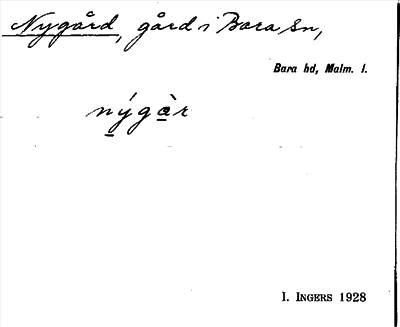 Nygård, gård i Bara sn,
Bara hd, Malm. l.
nýgàr
I. INGERS 1928